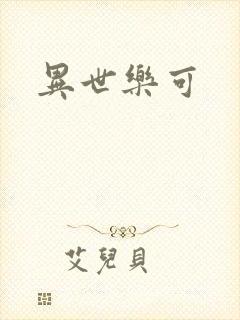 異世樂可
艾兒貝